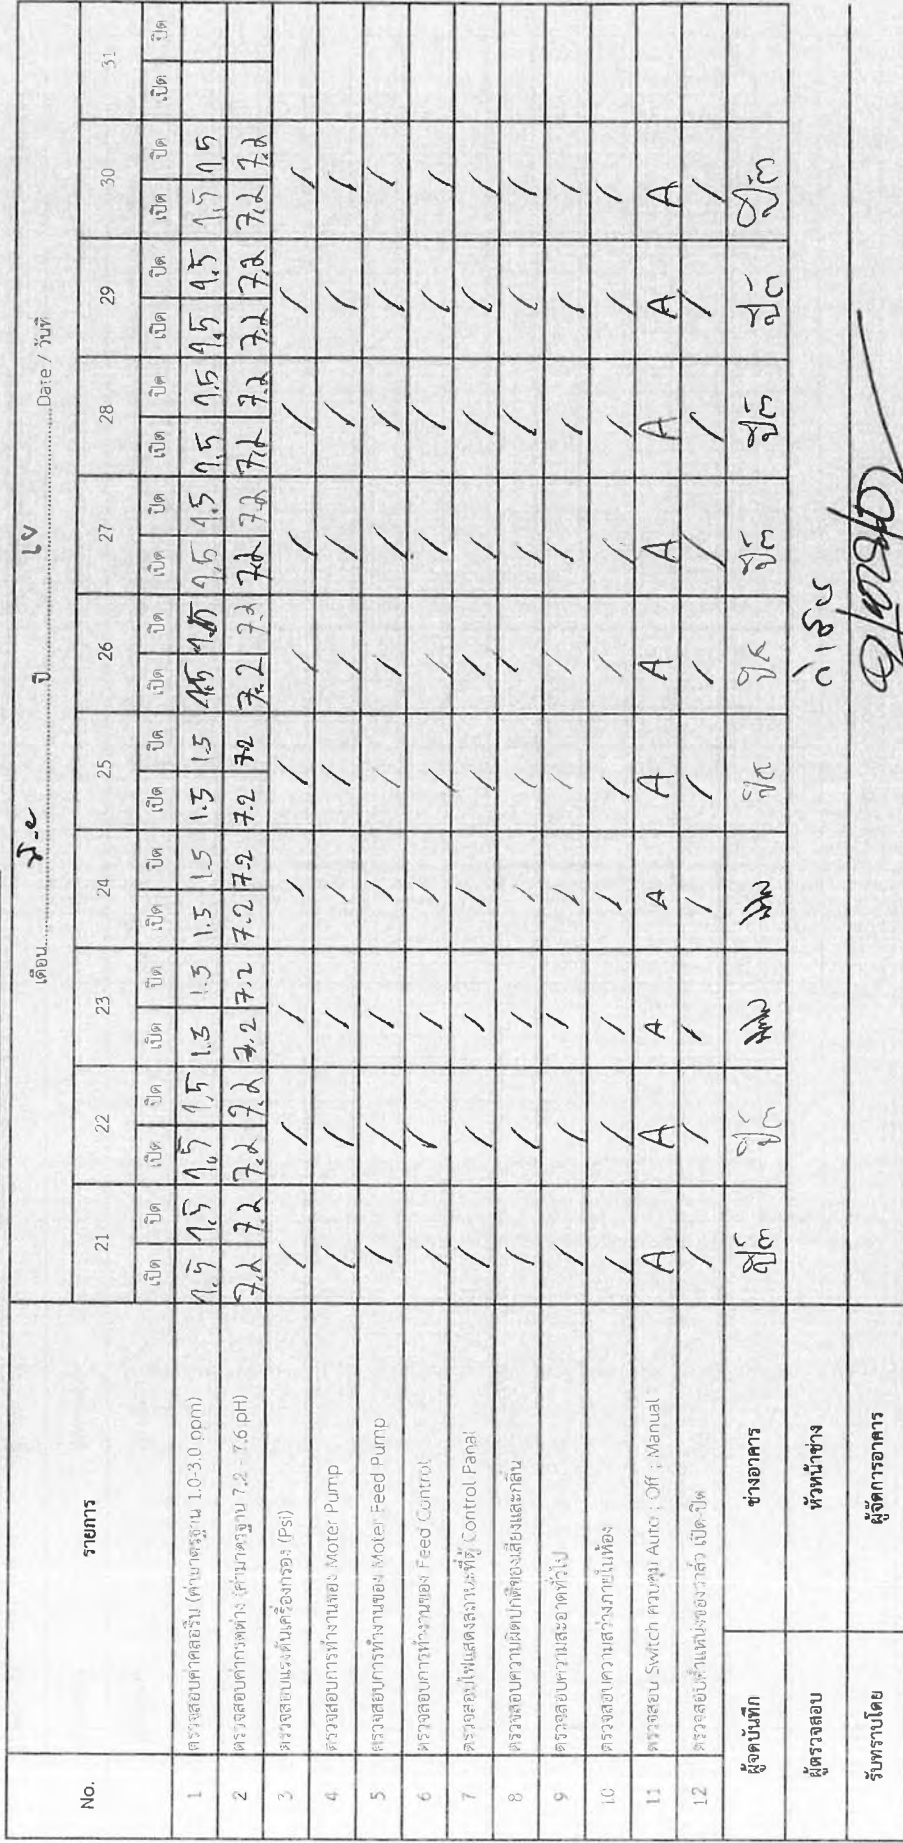 เดือน ปี Date / วันที่
No. รายการ 21 22 23 24 25 26 27 28 29 30 31
เปิด ปิด เปิด ปิด เปิด ปิด เปิด ปิด เปิด ปิด เปิด ปิด เปิด ปิด เปิด ปิด เปิด ปิด เปิด ปิด เปิด ปิด
1 ตรวจสอบค่าคลอรีน (ค่ามาตรฐาน 1.0-3.0 ppm) 1.5 1.5 1.5 1.5 1.3 1.3 1.5 1.5 1.5 1.5 1.5 1.5 1.5 1.5 1.5 1.5 1.5 1.5 1.5
2 ตรวจสอบค่ากรดด่าง (ค่ามาตรฐาน 7.2 - 7.6 pH) 7.2 7.2 7.2 7.2 7.2 7.2 7.2 7.2 7.2 7.2 7.2 7.2 7.2 7.2 7.2 7.2 7.2 7.2 7.2 7.2
3 ตรวจสอบแรงดันเครื่องกรอง (Psi) / / / / / / / / / /
4 ตรวจสอบการทำงานของ Moter Pump / / / / / / / / / /
5 ตรวจสอบการทำงานของ Moter Feed Pump / / / / / / / / / /
6 ตรวจสอบการทำงานของ Feed Control / / / / / / / / / /
7 ตรวจสอบไฟแสดงสถานะที่ตู้ Control Panal / / / / / / / / / /
8 ตรวจสอบความผิดปกติของเสียงและกลิ่น / / / / / / / / / /
9 ตรวจสอบความสะอาดทั่วไป / / / / / / / / / /
10 ตรวจสอบความสว่างภายในห้อง / / / / / / / / / /
11 ตรวจสอบ Switch ควบคุม Auto ; Off ; Manual A A A A A A A A A A
12 ตรวจสอบตำแหน่งของวาล์ว เปิด-ปิด / / / / / / / / / /
ผู้จดบันทึก ช่างอาคาร
ผู้ตรวจสอบ หัวหน้าช่าง
รับทราบโดย ผู้จัดการอาคาร